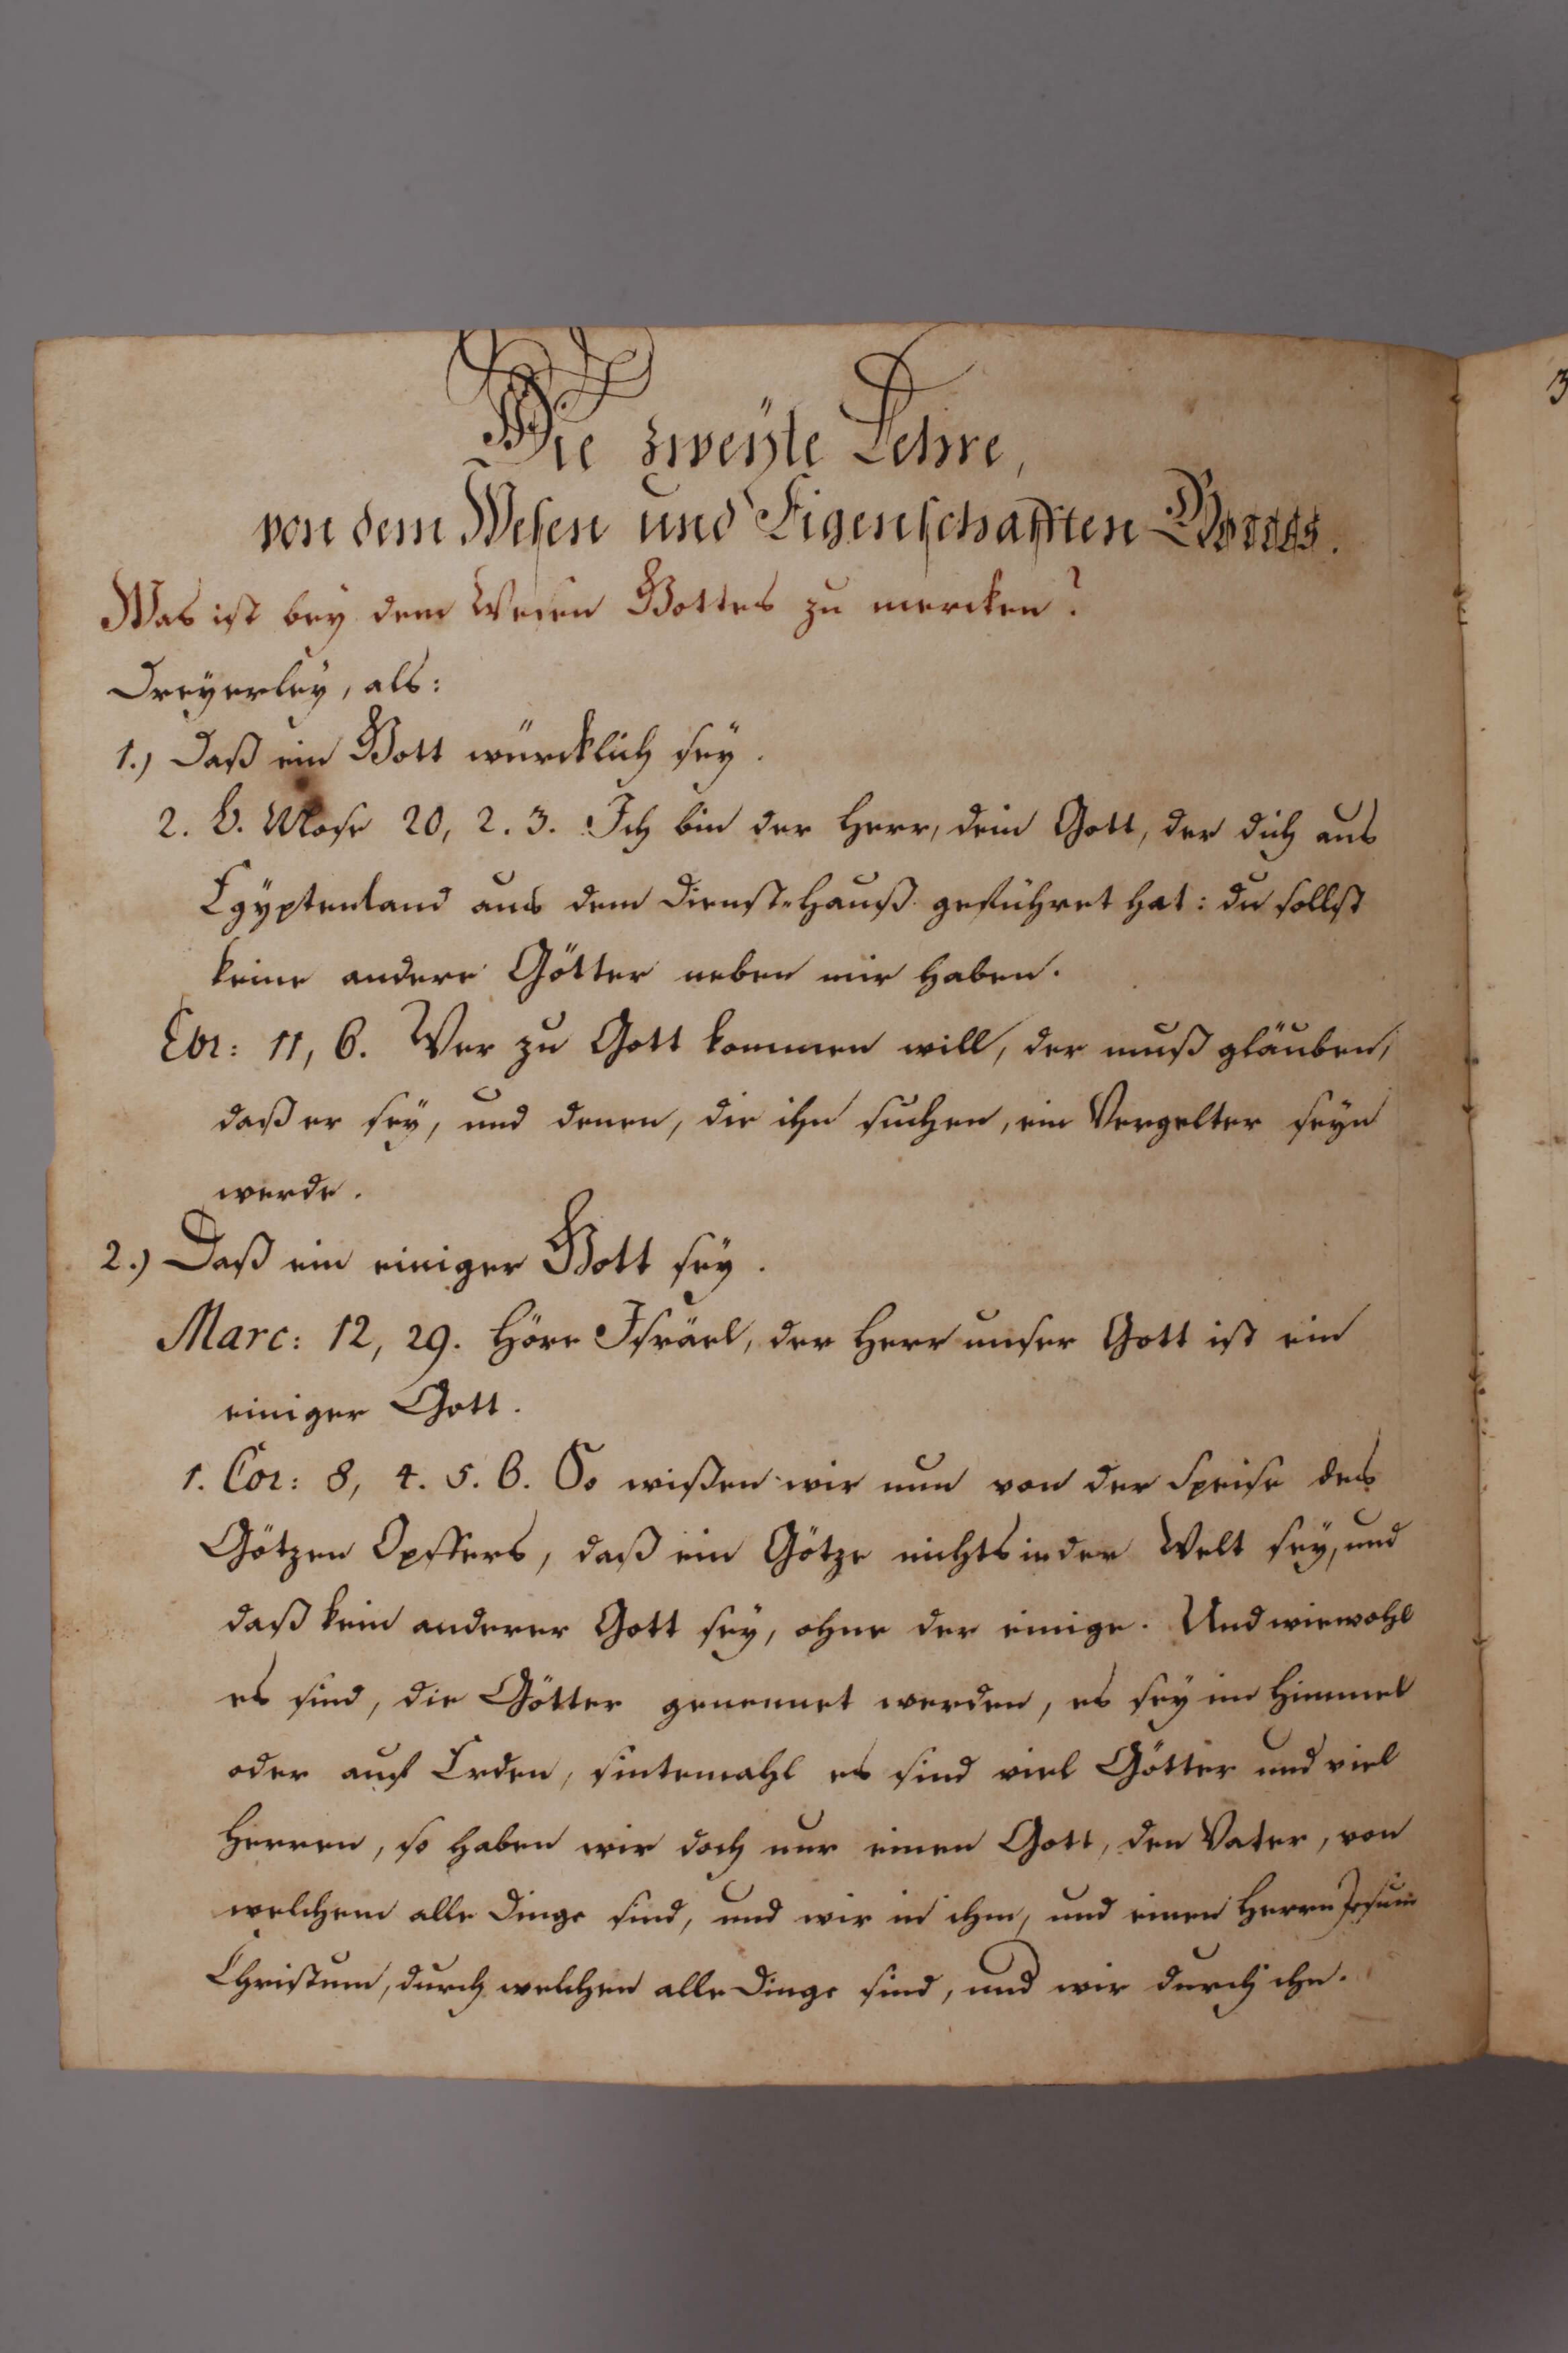 Die zweÿte Lehre,
von dem Wesen und Eigenschafften Gottes.
Was ist beÿ dem Wesen Gottes zu mercken?
Dreÿerleÿ, als:
1.) Daß ein Gott würcklich seÿ.
2. B. Mose 20, 2. 3. Ich bin der Herr, dein Gott, der dich aus
Egÿptenland aus dem Dienst-Hauß geführet hat: du sollst
keine andere Götter neben mir haben.
Ebr: 11, 6. Wer zu Gott kommen will, der muß gläuben,
daß er seÿ, und denen, die ihn suchen, ein Vergelter seÿn
werde.
2.) Daß ein einiger Gott seÿ.
Marc: 12, 29. Höre Israël, der Herr unser Gott ist ein
einiger Gott.
1. Cor: 8, 4. 5. 6. So wißen wir nun von der Speise des
Götzen Opffers, daß ein Götze nichts in der Welt seÿ, und
daß kein anderer Gott seÿ, ohne der einige. Und wiewohl
es sind, die Götter genennet werden, es seÿ im Himmel
oder auf Erden, sintemahl es sind viel Götter und viel
Herren, so haben wir doch nur einen Gott, den Vater, von
welchem alle Dinge sind, und wir in ihm, und einen Herrn Jesum
Christum, durch welchen alle Dinge sind, und wir durch ihn.
3